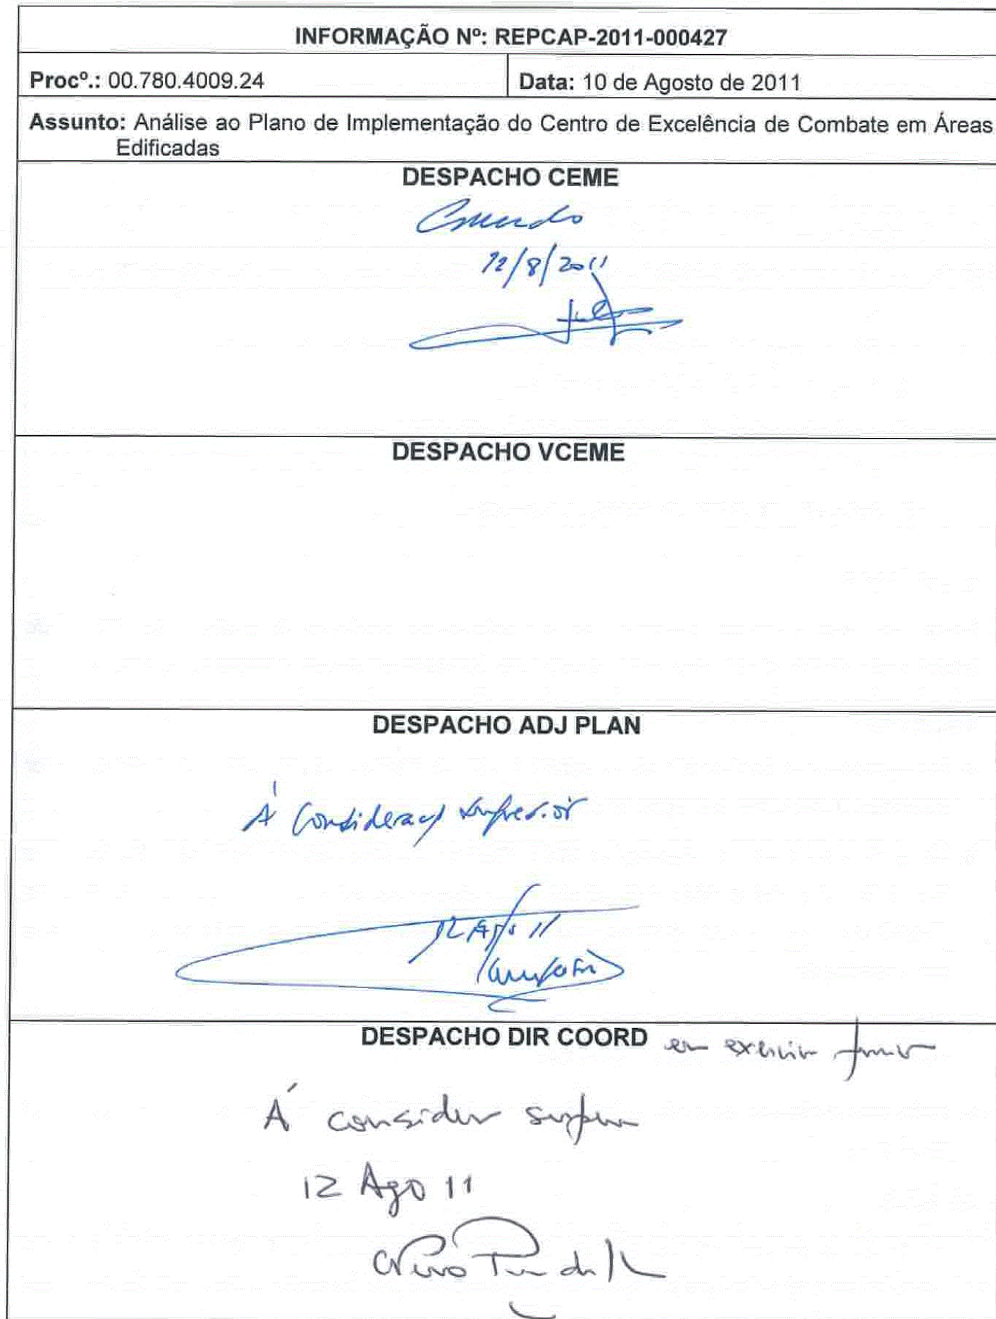 INFORMAÇÃO Nº: REPCAP-2011-000427
Procº.: 00.780.4009.24
Data: 10 de Agosto de 2011
Assunto: Análise ao Plano de Implementação do Centro de Excelência de Combate em Áreas
Edificadas
DESPACHO CEME
12/8/2011
DESPACHO VCEME
DESPACHO ADJ PLAN
À consideração superior
12 Ago 11
DESPACHO DIR COORD em
À consider
12 Ago 11